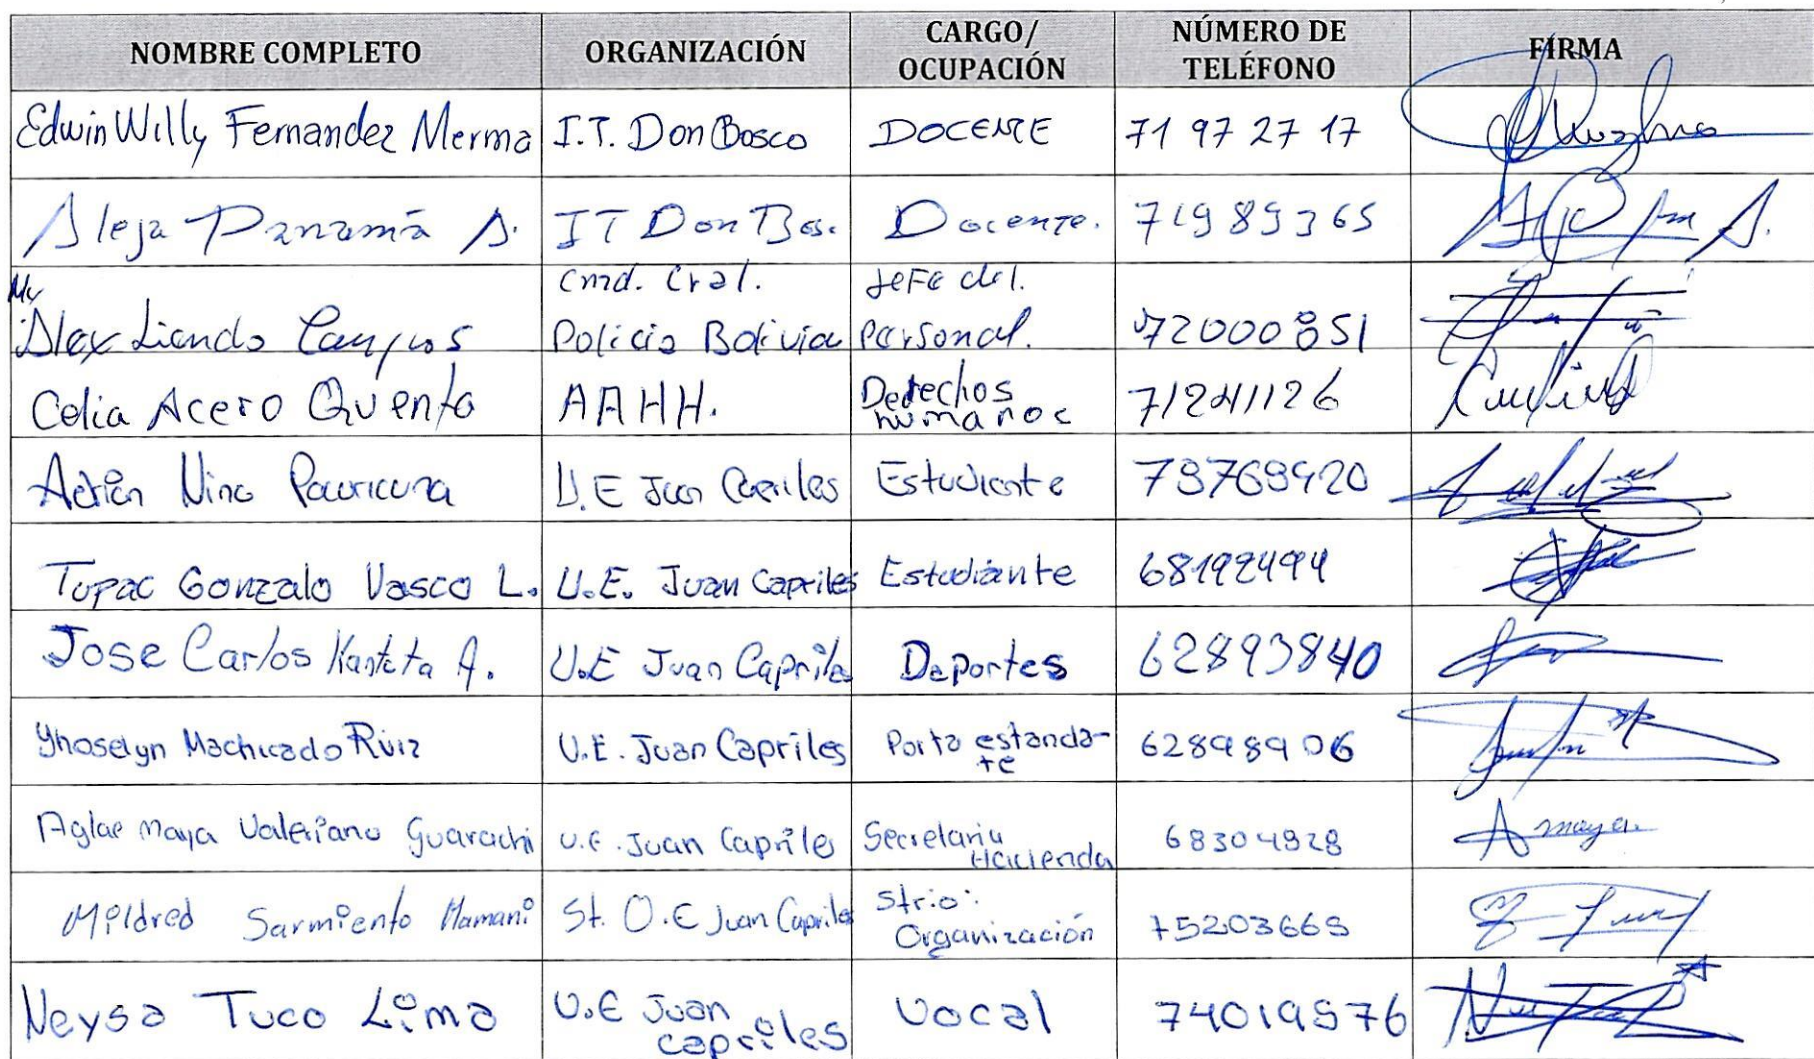 NOMBRE COMPLETO ORGANIZACIÓN CARGO/ OCUPACIÓN NÚMERO DE TELÉFONO FIRMA
Edwin Willy Fernandez Merma I.T. Don Bosco DOCENTE 71 97 27 17
Aleja Panamá A. IT Don Bos. Docente. 71989365
My Alex Liendo Campos Cmd. Gral. Policia Bolivia Jefe del. Personal. 72000851
Celia Acero Quenta AAHH. Derechos humanos 71241126
Adrian Nina U.E Juan Capriles Estudiante 79769920
Tupac Gonzalo Vasco L. U.E. Juan Capriles Estudiante 68192494
Jose Carlos Kantuta A. U.E Juan Caprile Deportes 62893840
Yhoselyn Machicado Ruiz U.E. Juan Capriles Porta estanda-te 62898906
Aglae Maya Valeriano Guarachi U.E. Juan Caprile Secretaria Hacienda 68304928
Mildred Sarmiento Mamani St. U.E Juan Capriles Strio: Organización 75203669
Neysa Tuco Lima U.E Juan capriles Vocal 74019576
Amaya